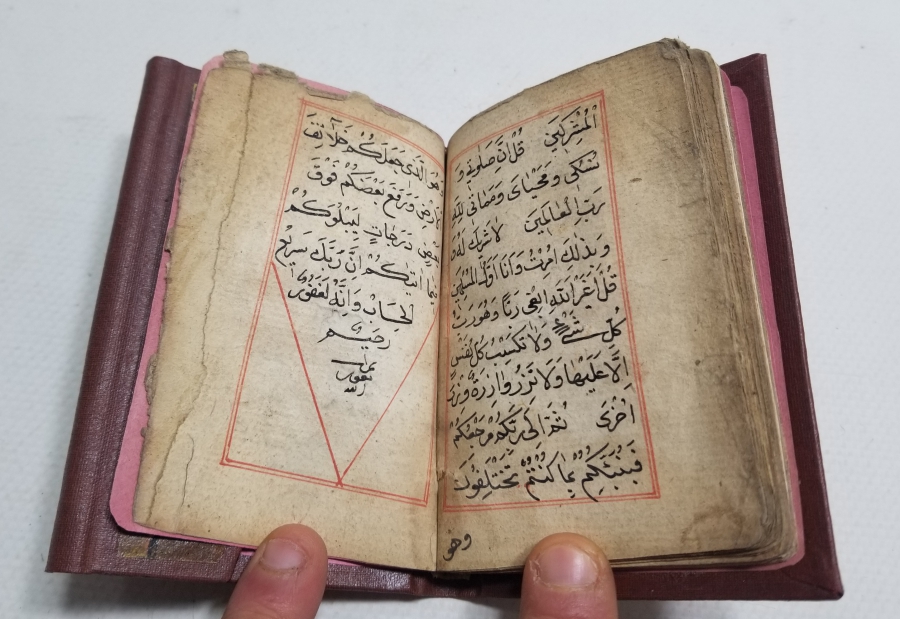 الْمُشْرِكِينَ قُلْ اِنَّ صَلَوتِى وَ
نُسُكِى وَمَحْيَاىَ وَمَمَاتِى لِلّٰهِ
رَبِّ الْعَالَمِينَ لَا شَرِيكَ لَهُ
وَبِذٰلِكَ اُمِرْتُ وَاَنَا اَوَّلُ الْمُسْلِمِينَ
قُلْ أَغَيْرَ اللهِ اَبْغِى رَبًّا وَهُوَ رَبُّ
كُلِّ شَىْءٍ وَلَا تَكْسِبُ كُلُّ نَفْسٍ
اِلَّا عَلَيْهَا وَلَا تَزِرُ وَازِرَةٌ وِزْرَ
اُخْرَى ثُمَّ اِلَى رَبِّكُمْ مَرْجِعُكُمْ
فَيُنَبِّئُكُمْ بِمَا كُنْتُمْ تَخْتَلِفُونَ
وهو
وَهُوَ الَّذِى جَعَلَكُمْ خَلَائِفَ
الْاَرْضِ وَرَفَعَ بَعْضَكُمْ فَوْقَ
بَعْضٍ دَرَجَاتٍ لِيَبْلُوَكُمْ
فِيمَا اٰتيكُمْ اِنَّ رَبَّكَ سَرِيعُ
الْحِسَابِ وَاِنَّهُ لَغَفُورٌ
رَحِيمٌ
بعون
الله